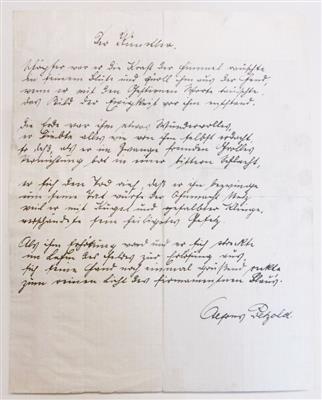 Der Künstler.
Schöpfer war er die Kraft der Himmel rauschte
in seinem Blute und quoll ihm aus der Hand,
wenn er mit den Gestirnen Worte tauschte
das Bild der Ewigkeit vor ihm entstand.
Die Erde war ihm etwas Wundervolles
er liebte alles wie von ihm selbst erdacht,
so daß, als er im Zwange fremden Grolles
Vernichtung bot in einer bittern Schlacht,
er sich den Tod rief, daß er ihn bezwinge
um seine Tat
weil er mit Kugel und Klinge,
ein heiligstes Gesetz
Als ihm Erhörung ward und er sich streckte
im Lehm des Feldes zur Erlösung aus,
sich seine Hand noch einmal grüßend reckte
zum reinen Licht des Firmamentes Blau's.
Alfons Petzold